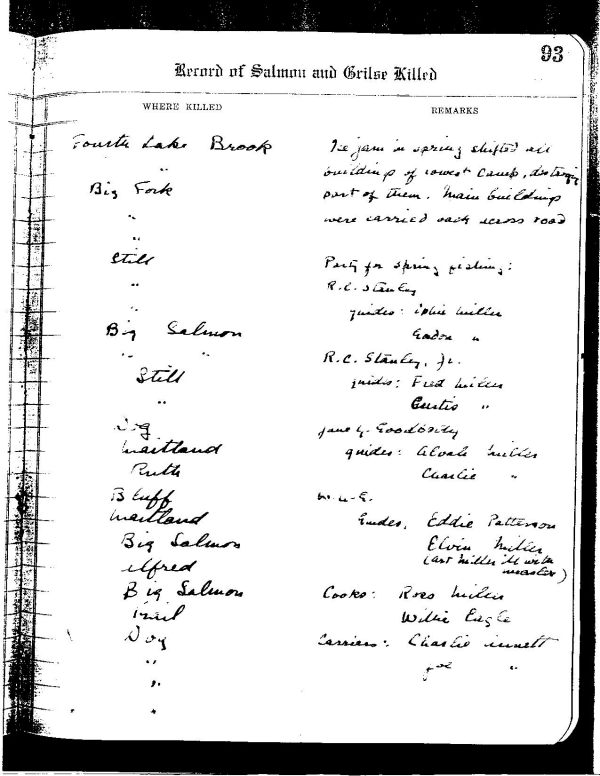 93
Record of Salmon and Grilse Killed
WHERE KILLED
REMARKS
Fourth Lake Brook
"
Big Fork
"
"
Still
"
Big Salmon
" "
Still
"
Dog
Maitland
Ruth
Bluff
Maitland
Big Salmon
Alfred
Big Salmon
Trail
Dog
"
"
"
Ice jam in spring shifted all
buildings of lowest camp, destroying
part of them. Main buildings
were carried back across road
Party for spring fishing:
R.C. Stanley
guides: Miller
Gordon "
R.C. Stanley, Jr.
guides: Fred Miller
Curtis "
guides: Miller
Charlie "
Guides, Eddie Patterson
Elvin Miller
(Art Miller ill with
measles)
Cooks: Ross Miller
Willie Eagle
Carriers: Charlie
Joe "